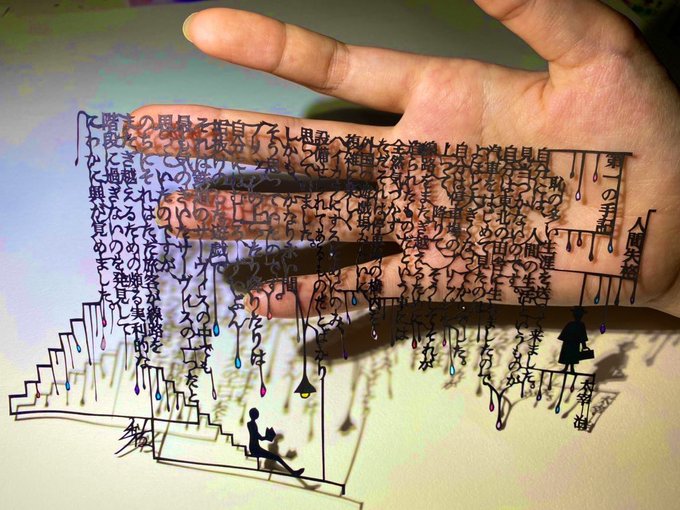 人間失格
太宰 治
第一の手記
恥の多い生涯を送って来ました。
自分には、人間の生活というものが、
見当つかないのです。
自分は東北の田舎に生れましたので、
汽車をはじめて見たのは、よほど
大きくなってからでした。
自分は停車場のブリッジを、
上って、降りて、そうしてそれが
線路をまたぎ越えるために
造られたものだという事には
全然気づかず、
ただそれは停車場の構内を
外国の遊戯場みたいに、
複雑に楽しく、
ハイカラにするためにのみ、
設備せられてあるものだとばかり
思っていました。
しかも、かなり永い間
そう思っていたのです。
ブリッジの上ったり降りたりは、
自分にはむしろ、ずいぶん
垢抜けのした遊戯で、
それは鉄道のサーヴィスの中でも、
最も気のきいたサーヴィスの一つだと
思っていたのですが、
のちにそれはただ旅客が線路を
またぎ越えるための頗る実利的な
階段に過ぎないのを発見して、
にわかに興が覚めました。